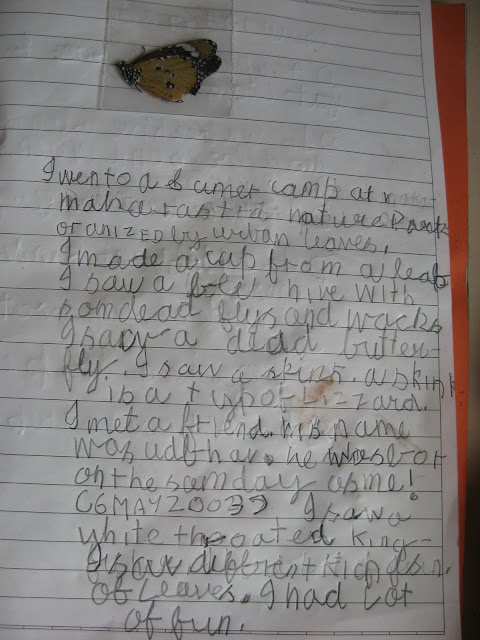 I went to a Sumer camp at
maharastra nature Park
oranized by urban leaves.
I made a cap from a leaf
I saw a bee hive with
som dead flys and wacks
I saw a dead butter-
fly. I saw a skink. a skink
is a typ of Lizzard.
I met a friend. his name
was udbhav. he was bor
on the sam day as me!
(6 MAY 2003) I saw a
white throated king-
I saw different kinds
of leaves. I had Lot
of fun.